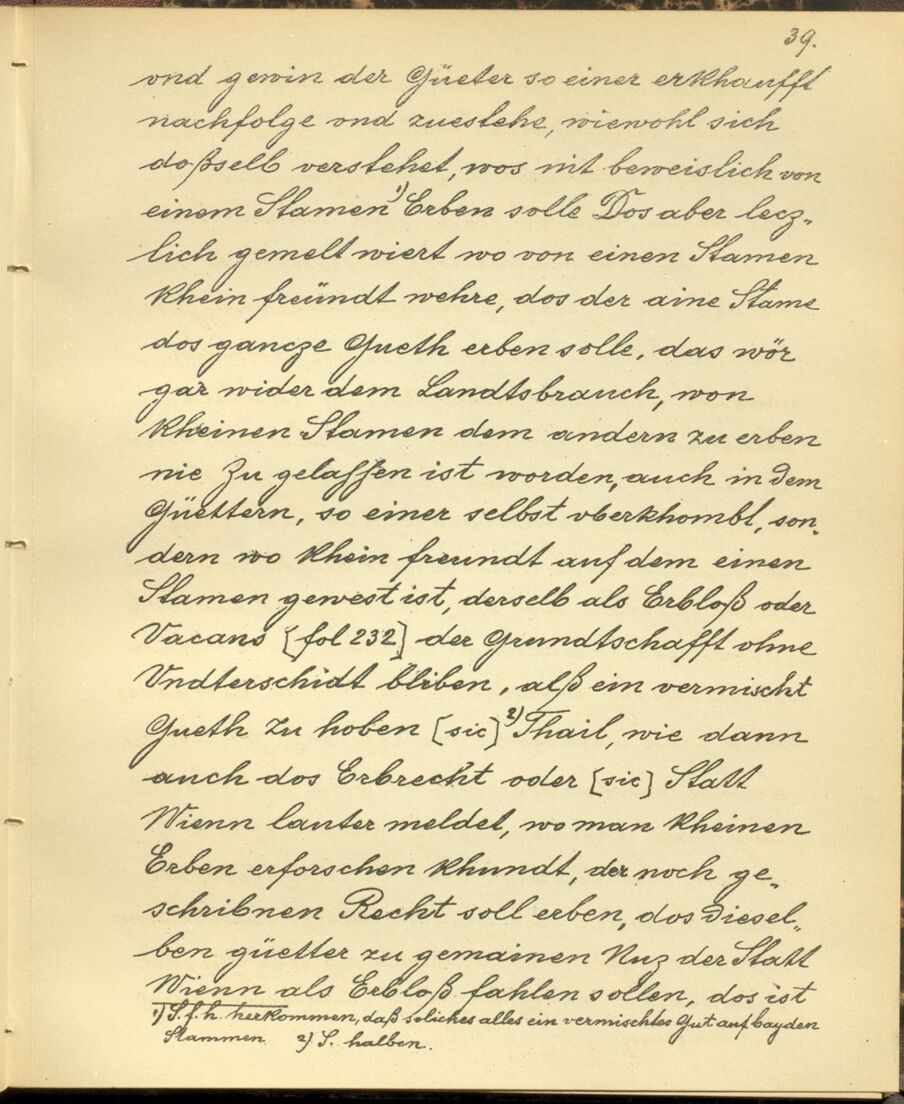 39.
vnd gewin der Güeter so einer erkhaufft
nachfolge vnd zuestehe, wiewohl sich
doßselb verstehet, wos nit beweislich von
einem Stamen ¹) Erben solle Dos aber lecz-
lich gemelt wiert wo von einen Stamen
khein freündt wehre, dos der aine Stame
dos gancze Gueth erben solle, das wör
gar wider dem Landtsbrauch, won
kheinen Stamen dem andern zu erben
nie Zu gelassen ist worden, auch in dem
Güettern, so einer selbst vberkhombt, son-
dern wo khein freundt auf dem einen
Stamen gewest ist, derselb als Erbloß oder
Vacans [fol 232] der Grundtschafft ohne
Vndterschidt bliben, alß ein vermischt
Gueth Zu hoben [sic] ²) Thail, wie dann
auch dos Erbrecht oder [sic] Statt
Wienn lauter meldet, wo man kheinen
Erben erforschen khundt, der noch ge-
schribnen Recht soll erben, dos diesel-
ben güetter zu gemainen Nuz der Statt
Wienn als Erbloß fahlen sollen, dos ist
¹) S.f.h. herkommen, daß soliches alles ein vermischtes Gut auf bayden
Stammen. ²) S. halben.